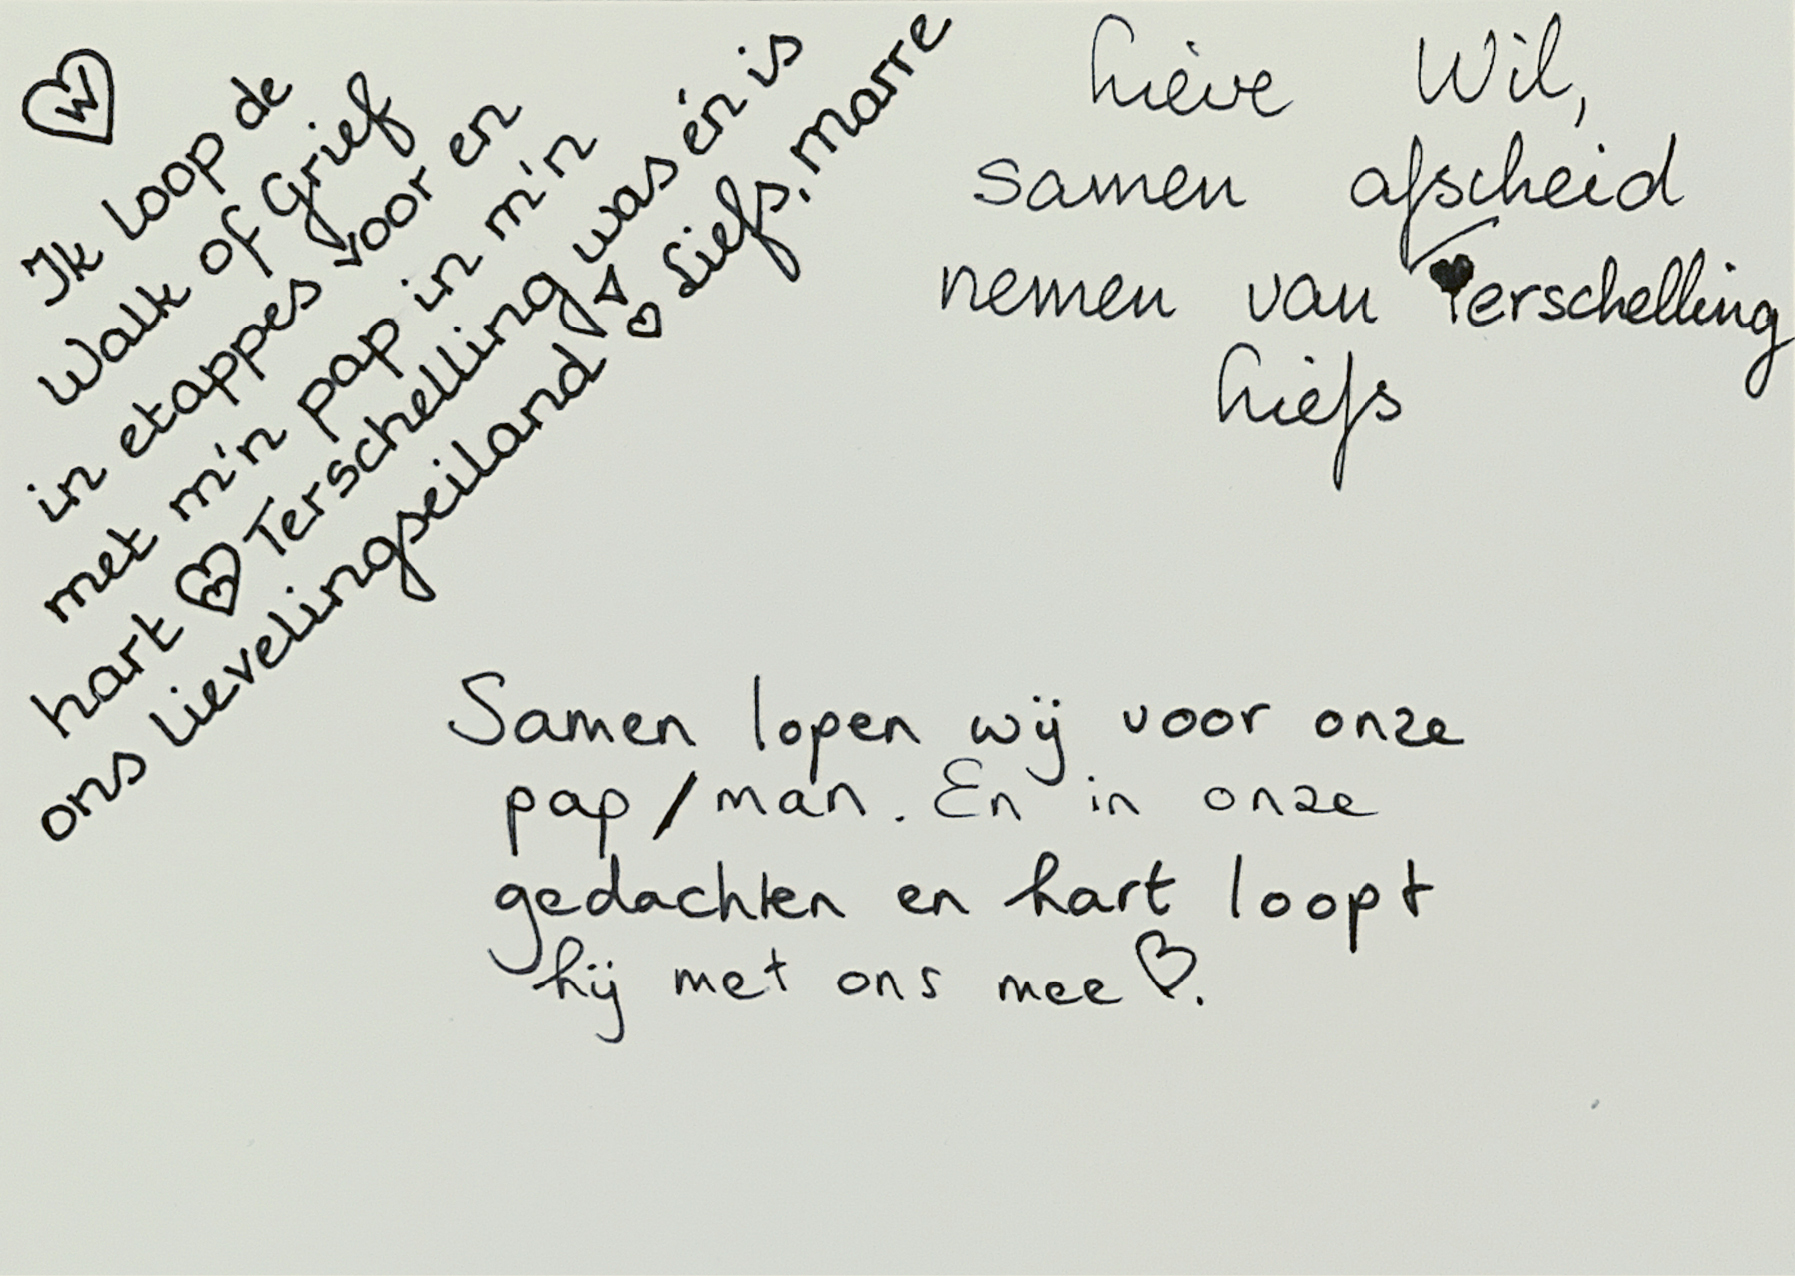 W
Ik loop de
Walk of Grief
in etappes voor en
met m'n pap in m'n
hart Terschelling was én is
ons lievelingseiland Liefs, Marre
Lieve Wil,
samen afscheid
nemen van Terschelling
Liefs
Samen lopen wij voor onze
pap/man. En in onze
gedachten en hart loopt
hij met ons mee.